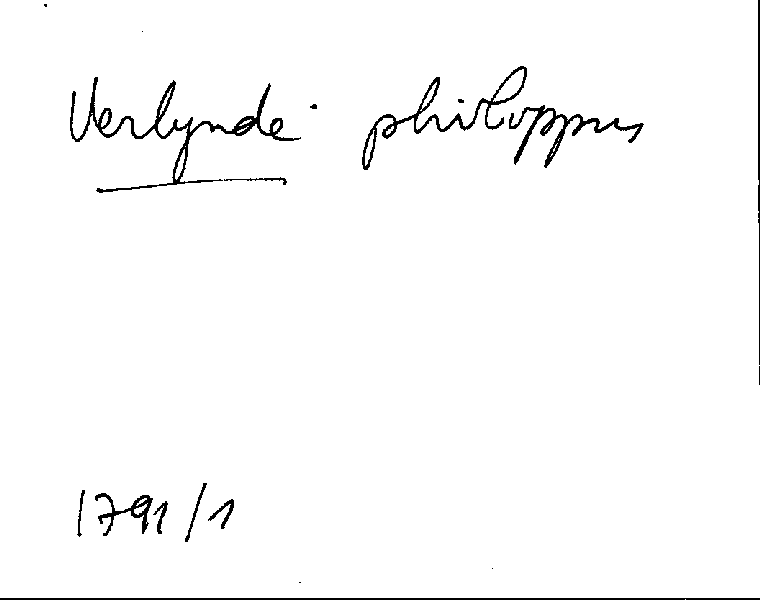 Verlynde philippus
1791/1